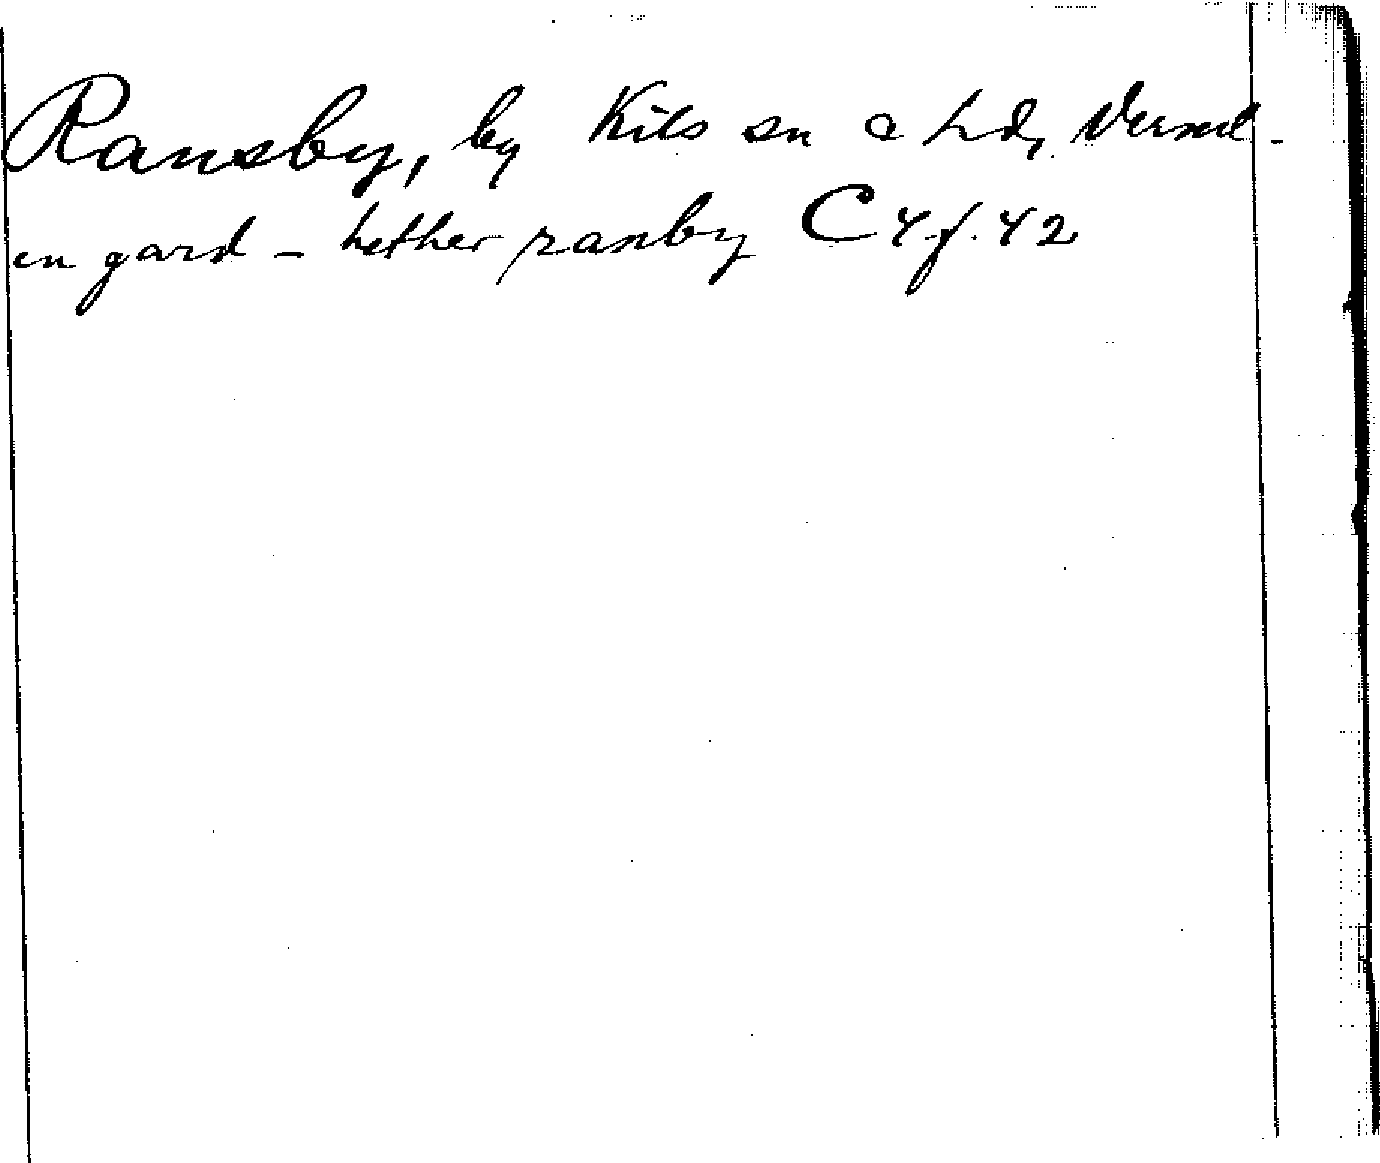 Ransby, by Kils sn o hd, Verml.
en gard - hether ranby C 4 f. 42